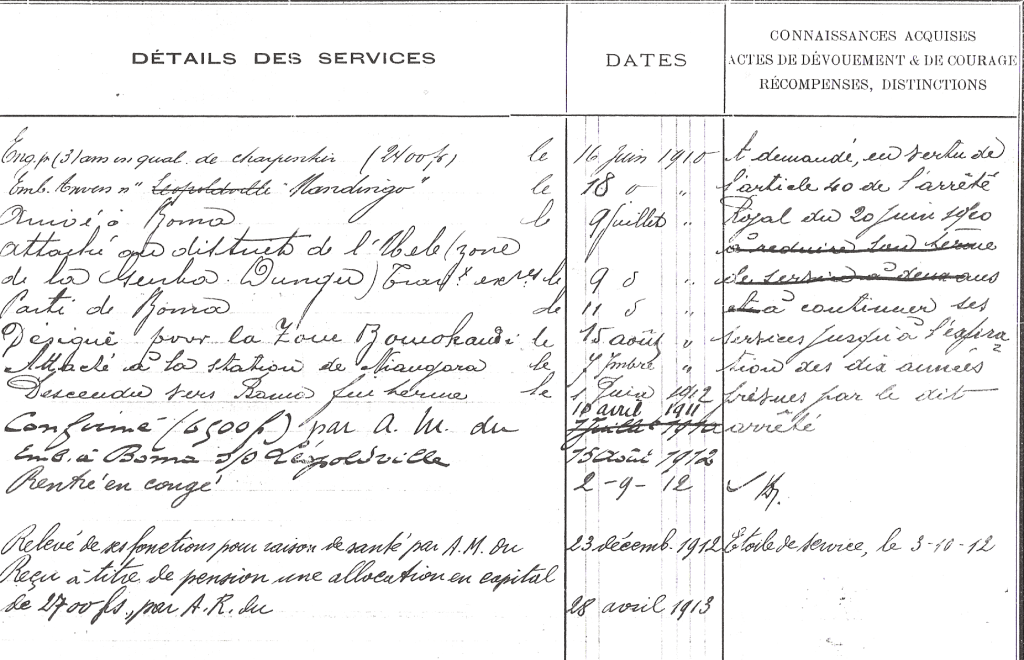 DÉTAILS DES SERVICES
DATES
CONNAISSANCES ACQUISES
ACTES DE DÉVOUEMENT & DE COURAGE
RÉCOMPENSES, DISTINCTIONS
Eng. p (3) ans en qual. de charpentier (2400 fr) le 16 Juin 1910
Emb. Anvers s/ Léopoldville "Mandingo" le 18 o "
Arrivé à Boma le 9 Juillet "
Attaché au district de l'Uele (zone
de la Gurba. Dungu) le 9 o "
Parti de Boma le 11 o "
Désigné pour la Zone Bomokandi le 15 août "
Attaché à la station de Niangara le 7 "
Descendu vers Boma fin terme le 1 Juin 1912
Confirmé (6500 f.) par A. M. du 10 avril 1911
Emb. à Boma s/o Léopoldville 15 Août 1912
Rentré en congé 2-9-12
Relevé de ses fonctions pour raison de santé par A.M. du 23 décemb. 1912
Reçu à titre de pension une allocation en capital
de 2700 frs, par A.R. du 28 avril 1913
A demandé, en vertu de
l'article 40 de l'arrêté
Royal du 20 Juin 1910
à réduire son terme
de service à deux ans
et à continuer ses
services jusqu'à l'expira
tion des dix années
prévues par le dit
arrêté
Etoile de service, le 3-10-12